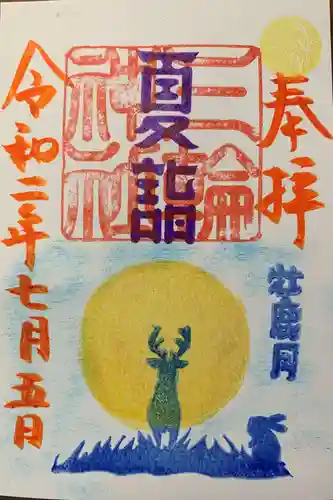 奉拝
三輪神社
夏詣
牡鹿月
令和二年七月五日